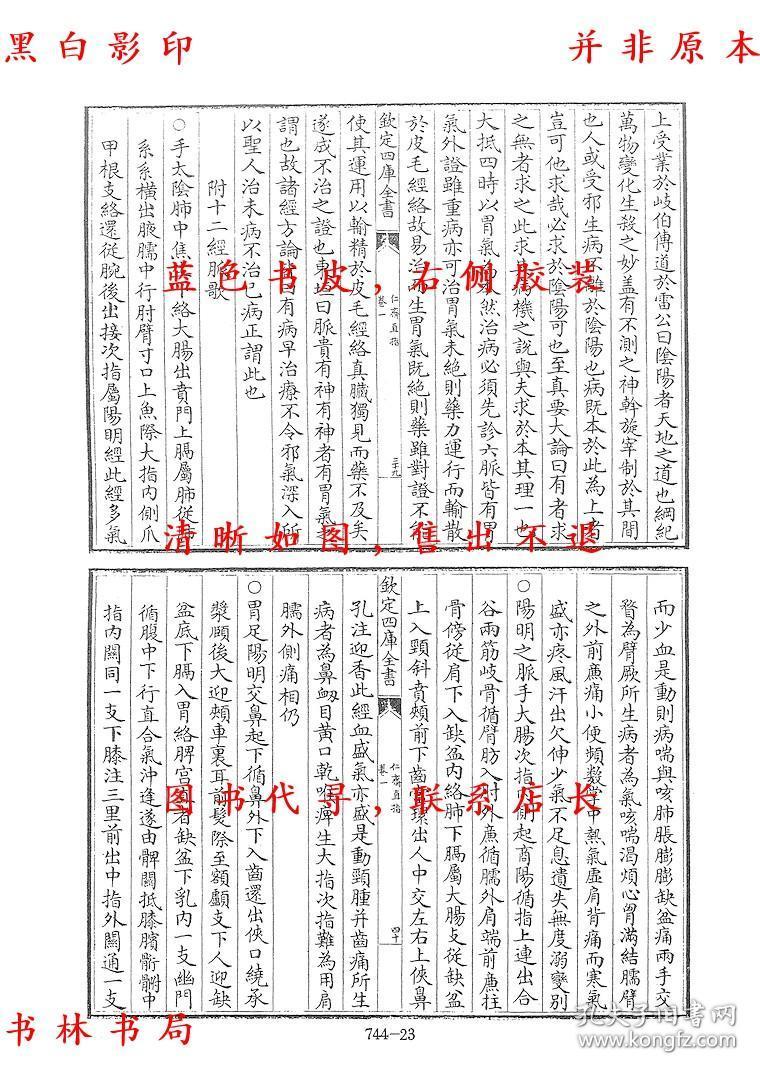 黑白影印
并非原本
上受業於岐伯傳道於雷公曰陰陽者天地之道也綱紀
萬物變化生殺之妙盖有不測之神斡旋宰制於其間
也人或受邪生病不離於陰陽也病既本於此為上者
豈可他求哉必求於陰陽可也至真要大論曰有者求
之無者求之此求其病機之說與夫求於本其理一也
大抵四時以胃氣為本然治病必須先診六脈皆有胃
氣外證雖重病亦可治胃氣未絕則藥力運行而輸散
於皮毛經絡故易治而生胃氣既絕則藥雖對證不能
欽定四庫全書
仁齋直指
卷一
三十九
使其運用以輸精於皮毛經絡真臟獨見而藥不及矣
遂成不治之證也東垣曰脈貴有神有神者有胃氣之
謂也故諸經方論皆曰有病早治療不令邪氣深入所
以聖人治未病不治已病正謂此也
附十二經脈歌
○手太陰肺中焦生絡大腸出賁門上膈屬肺從肺
系系橫出腋臑中行肘臂寸口上魚際大指內側爪
甲根支絡還從腕後出接次指屬陽明經此經多氣
蓝色书皮,右侧胶装
清晰如图,售出不退
而少血是動則病喘與咳肺脹膨膨缺盆痛兩手交
瞀為臂厥所生病者為氣咳喘渴煩心胷滿結臑臂
之外前廉痛小便頻數掌中熱氣虛肩背痛而寒氣
盛亦疼風汗出欠伸少氣不足息遺失無度溺變別
○陽明之脈手大腸次指內側起商陽循指上連出合
谷兩筋歧骨循臂肪入肘外廉循臑外肩端前廉柱
骨傍從肩下入缺盆內絡肺下膈屬大腸支從缺盆
上入頸斜賁頰前下齒環出人中交左右上俠鼻
欽定四庫全書
仁齋直指
卷一
四十
孔注迎香此經血盛氣亦盛是動頸腫并齒痛所生
病者為鼻衂目黄口乾喉痺生大指次指難為用肩
臑外側痛相仍
○胃足陽明交鼻起下循鼻外下入齒還出俠口繞承
漿頤後大迎頰車裏耳前髮際至額顱支下人迎缺
盆底下膈入胃絡脾宮直者缺盆下乳內一支幽門
循腹中下行直合氣沖逢遂由髀關抵膝臏䯒跗中
指內關同一支下膝注三里前出中指外關通一支
图书代寻,联系店长
书林书局
744-23
孔夫子旧书网